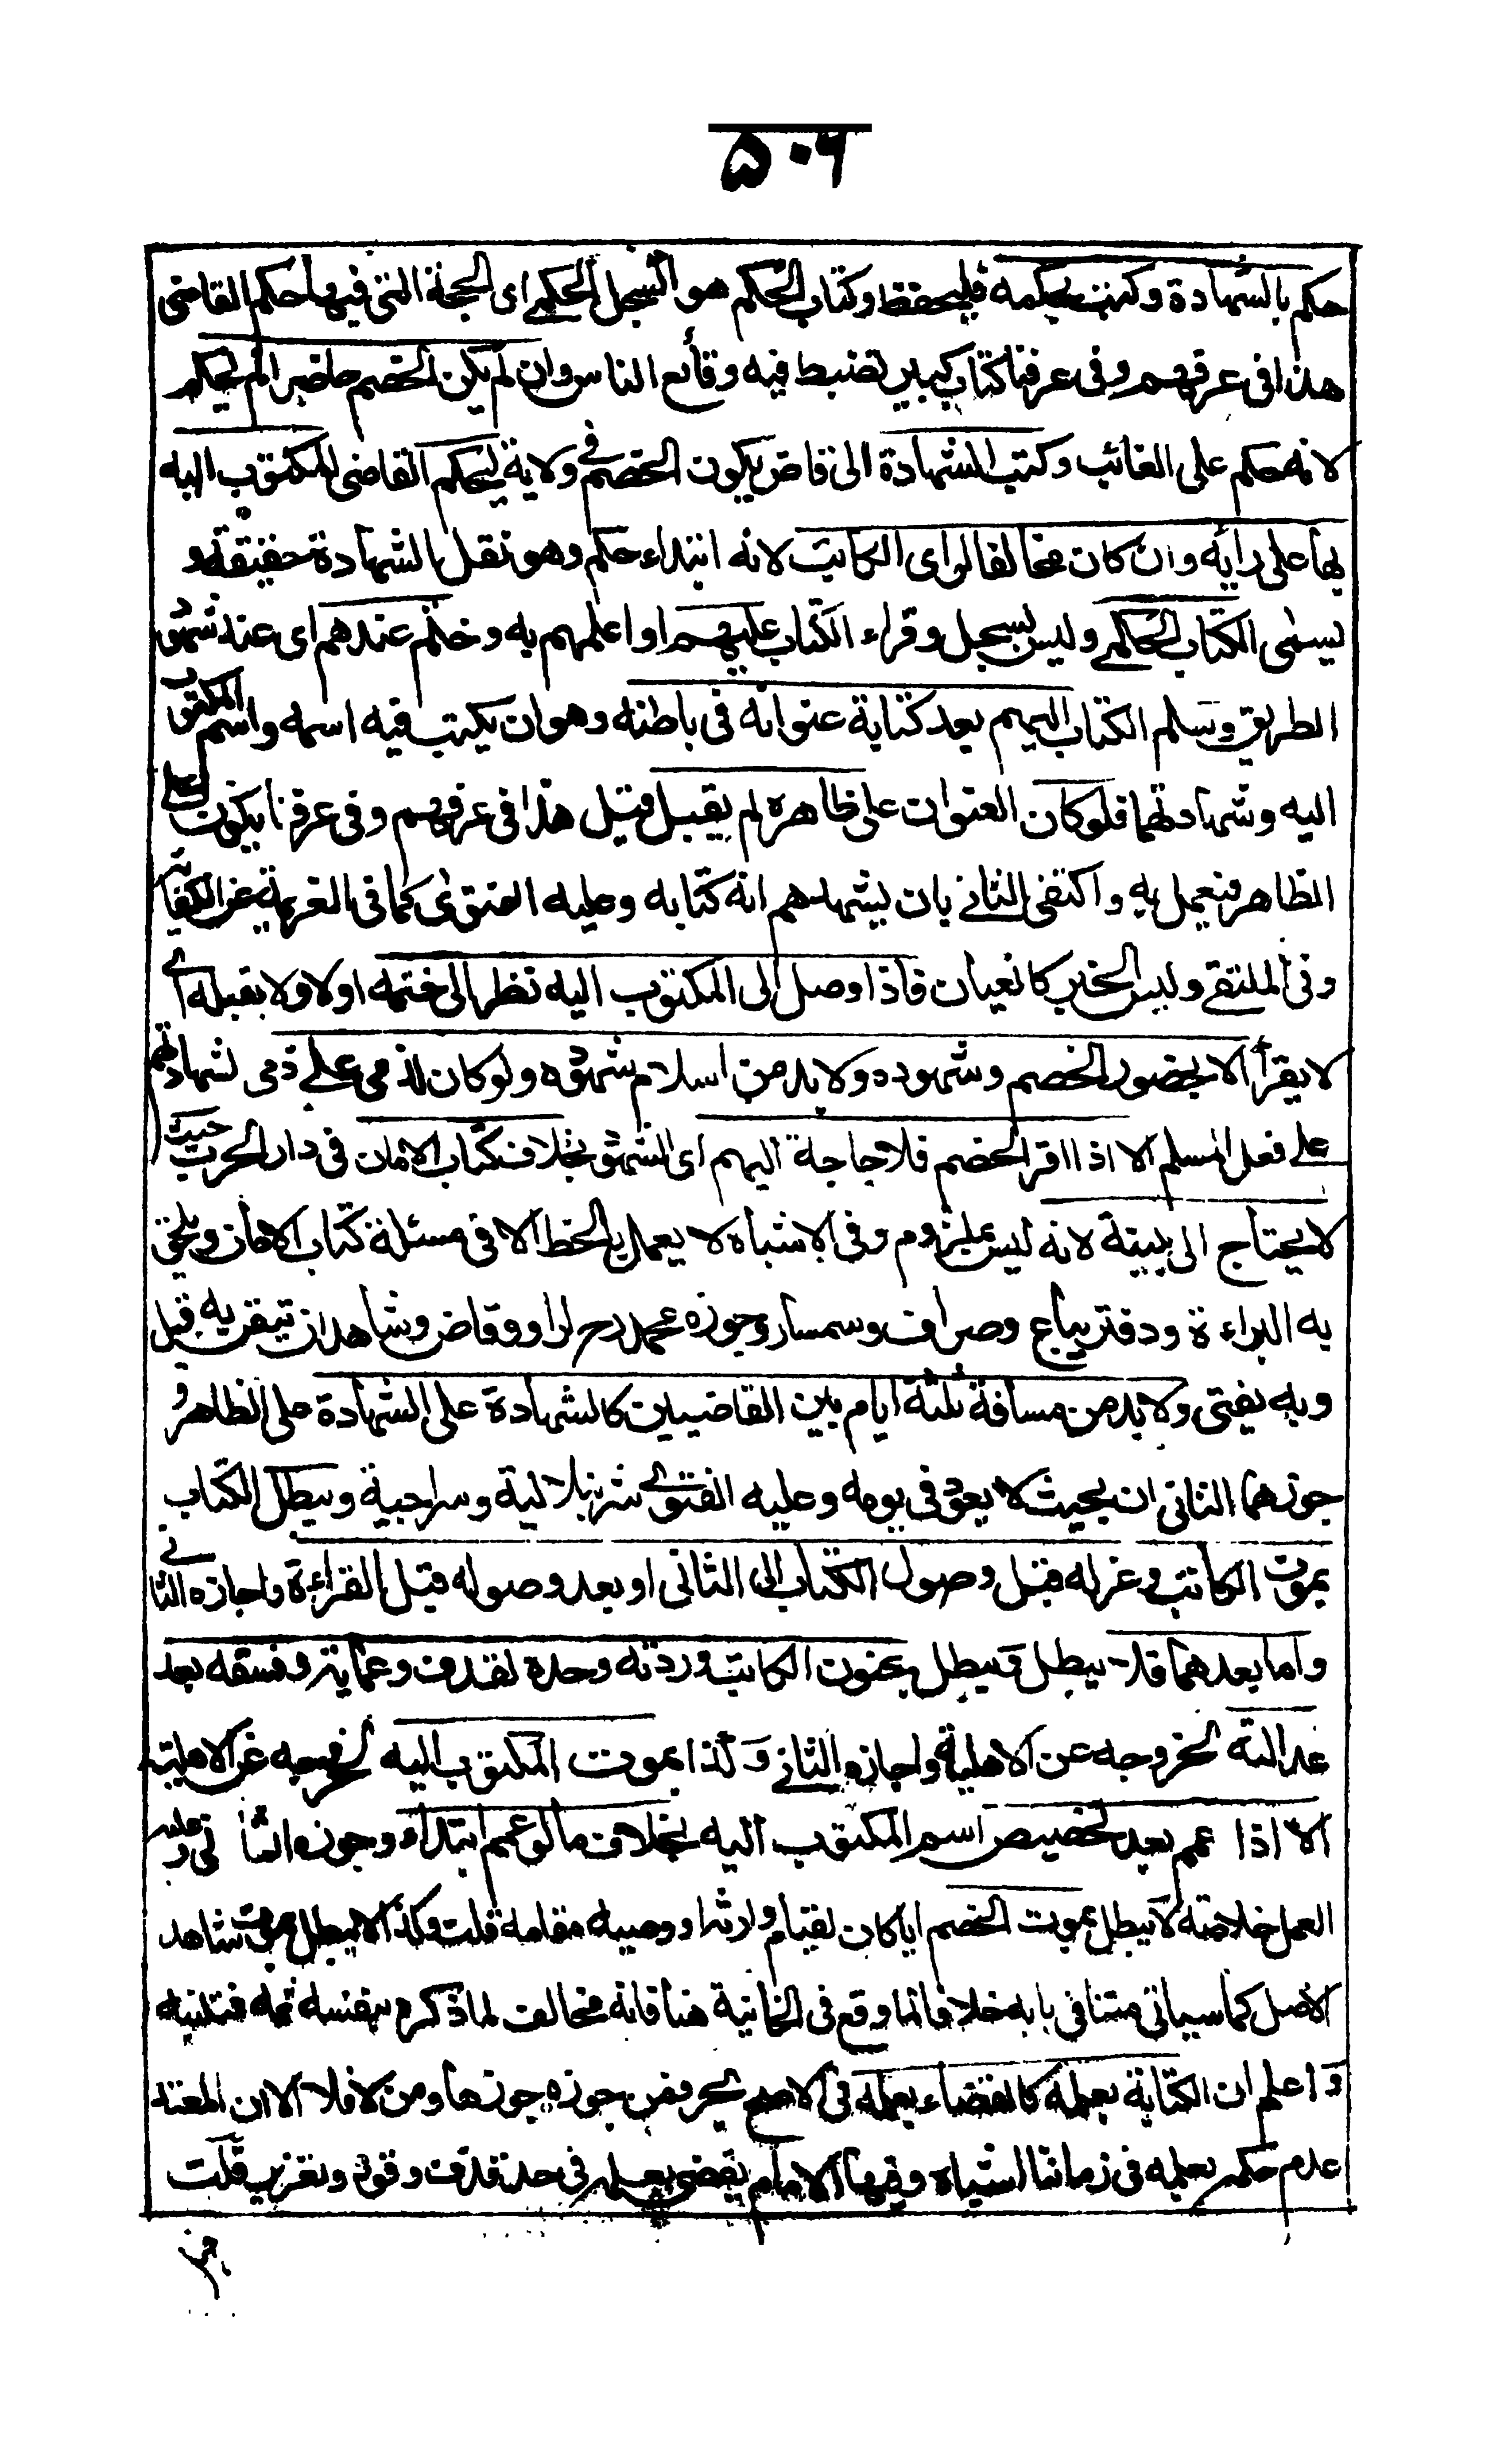 ٥٠٦
حكم بالشهادة وكتب بحكمه فليحفظ وكتاب الحكم هو السجل الحكمي اى الحجة التى فيها حكم القاضى
هذا فى عرفهم وفى عرفنا كتاب كبير تضبط فيه وقائع الناس وان لم يكن الخصم حاضرا لم يحكم
لانه حكم على الغائب وكتب الشهادة الى قاض يكون الخصم فى ولاية ليحكم القاضى المكتوب اليه
بها على رايه وان كان مخالفا لراى الكاتب لانه ابتداء حكم وهو نقل الشهادة حقيقة و
يسمى الكتاب الحكمي وليس بسجل وقراء الكتاب عليهم او اعلمهم به وختم عندهم اى عند شهود
الطريق وسلم الكتاب اليهم بعد كتابة عنوانه فى باطنه وهو ان يكتب فيه اسمه واسم المكتوب
اليه وشهادتهما فلو كان العنوان على ظاهره لم يقبل قيل هذا فى عرفهم وفى عرفنا يكون على
الظاهر فيعمل به واكتفى الثانى بان يشهدهم انه كتابه وعليه الفتوى كما فى العزمية عن الكفاية
وفى الملتقى وليس الخبر كالعيان فاذا وصل الى المكتوب اليه نظر الى ختمه اولا ولا يقبله اى
لا يقرأ الا بحضور الخصم وشهوده ولا بد من اسلام شهوده ولو كان لذمى على ذمى لشهادتهم
على فعل المسلم الا اذا اقر الخصم فلا حاجة اليهم اى الشهود بخلاف كتاب الامان فى دار الحرب حيث
لا يحتاج الى بينة لانه ليس بملزم وفى الاشباه لا يعمل بالخط الا فى مسئلة كتاب الامان ويلحق
به البراءة ودفتر بياع وصراف وسمسار وجوزه محمد رح لراو وقاض وشاهد ان تيقن به قيل
وبه يفتى ولا بد من مسافة ثلثة ايام بين القاضيين كالشهادة على الشهادة على الظاهر و
جوزهما الثانى ان بحيث لا يعود فى يومه وعليه الفتوى شرنبلالية وسراجية ويبطل الكتاب
بموت الكاتب وعزله قبل وصول الكتاب الى الثانى او بعد وصوله قبل القراءة واجازه الثانى
واما بعدهما فلا يبطل ويبطل بجنون الكاتب وردته وحده لقذف وعمايته وفسقه بعد
عدالته لخروجه عن الاهلية واجازه الثانى وكذا بموت المكتوب اليه لخروجه عن الاهلية
الا اذا عمم بعد تخصيص اسم المكتوب اليه بخلاف ما لو عمم ابتداء وجوزه الثانى وعليه
العمل خلاصة لا يبطل بموت الخصم ايا كان لقيام وارثه او وصيه مقامه قلت وكذا لا يبطل بموت شاهد
الاصل كما سياتى متنا فى بابه خلافا لما وقع فى الخانية هنا فانه مخالف لما ذكره بنفسه ثمه فتنبه
واعلم ان الكتابة بعلمه كالقضاء بعلمه فى الاصح بحر فمن جوزه جوزها ومن لا فلا الا ان المعتمد
عدم حكمه بعلمه فى زماننا اشباه وفيها الامام يقضى بعلمه فى حد قذف وقود وتعزير قلت